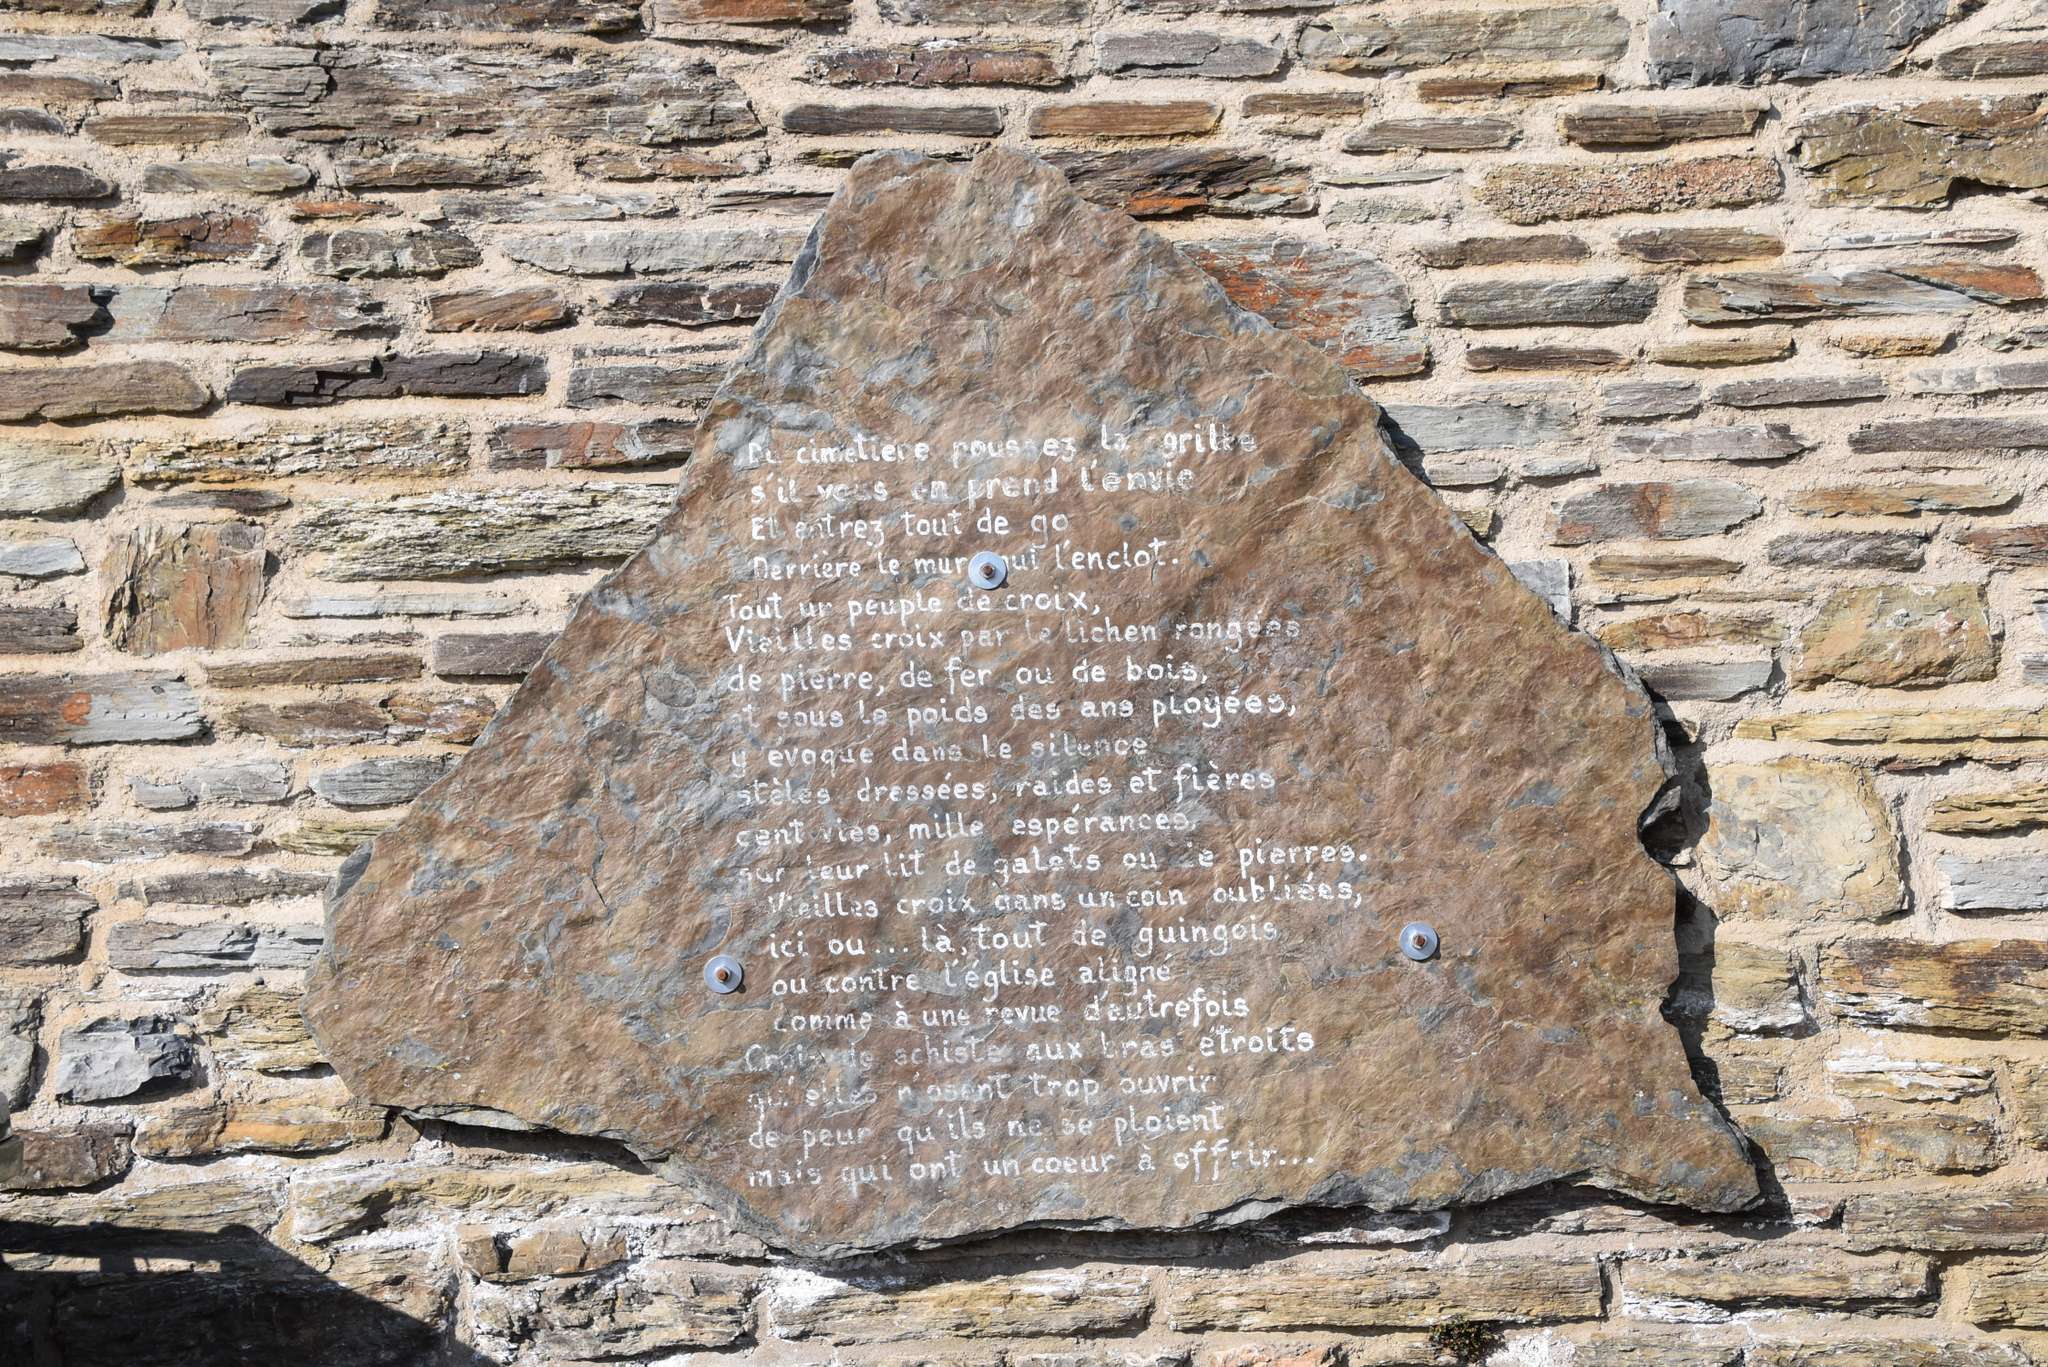 Du cimetière poussez la grille
s'il vous en prend l'envie
Et entrez tout de go
Derrière le mur qui l'enclot.
Tout un peuple de croix,
Vieilles croix par le lichen rongées
de pierre, de fer ou de bois,
et sous le poids des ans ployées,
y évoque dans le silence
stèles dressées, raides et fières
cent vies, mille espérances,
sur leur lit de galets ou de pierres.
Vieilles croix dans un coin oubliées,
ici ou... là, tout de guingois
ou contre l'église aligné
comme à une revue d'autrefois
Croix de schiste aux bras étroits
qu'elles n'osent trop ouvrir
de peur qu'ils ne se ploient
mais qui ont un coeur à offrir...